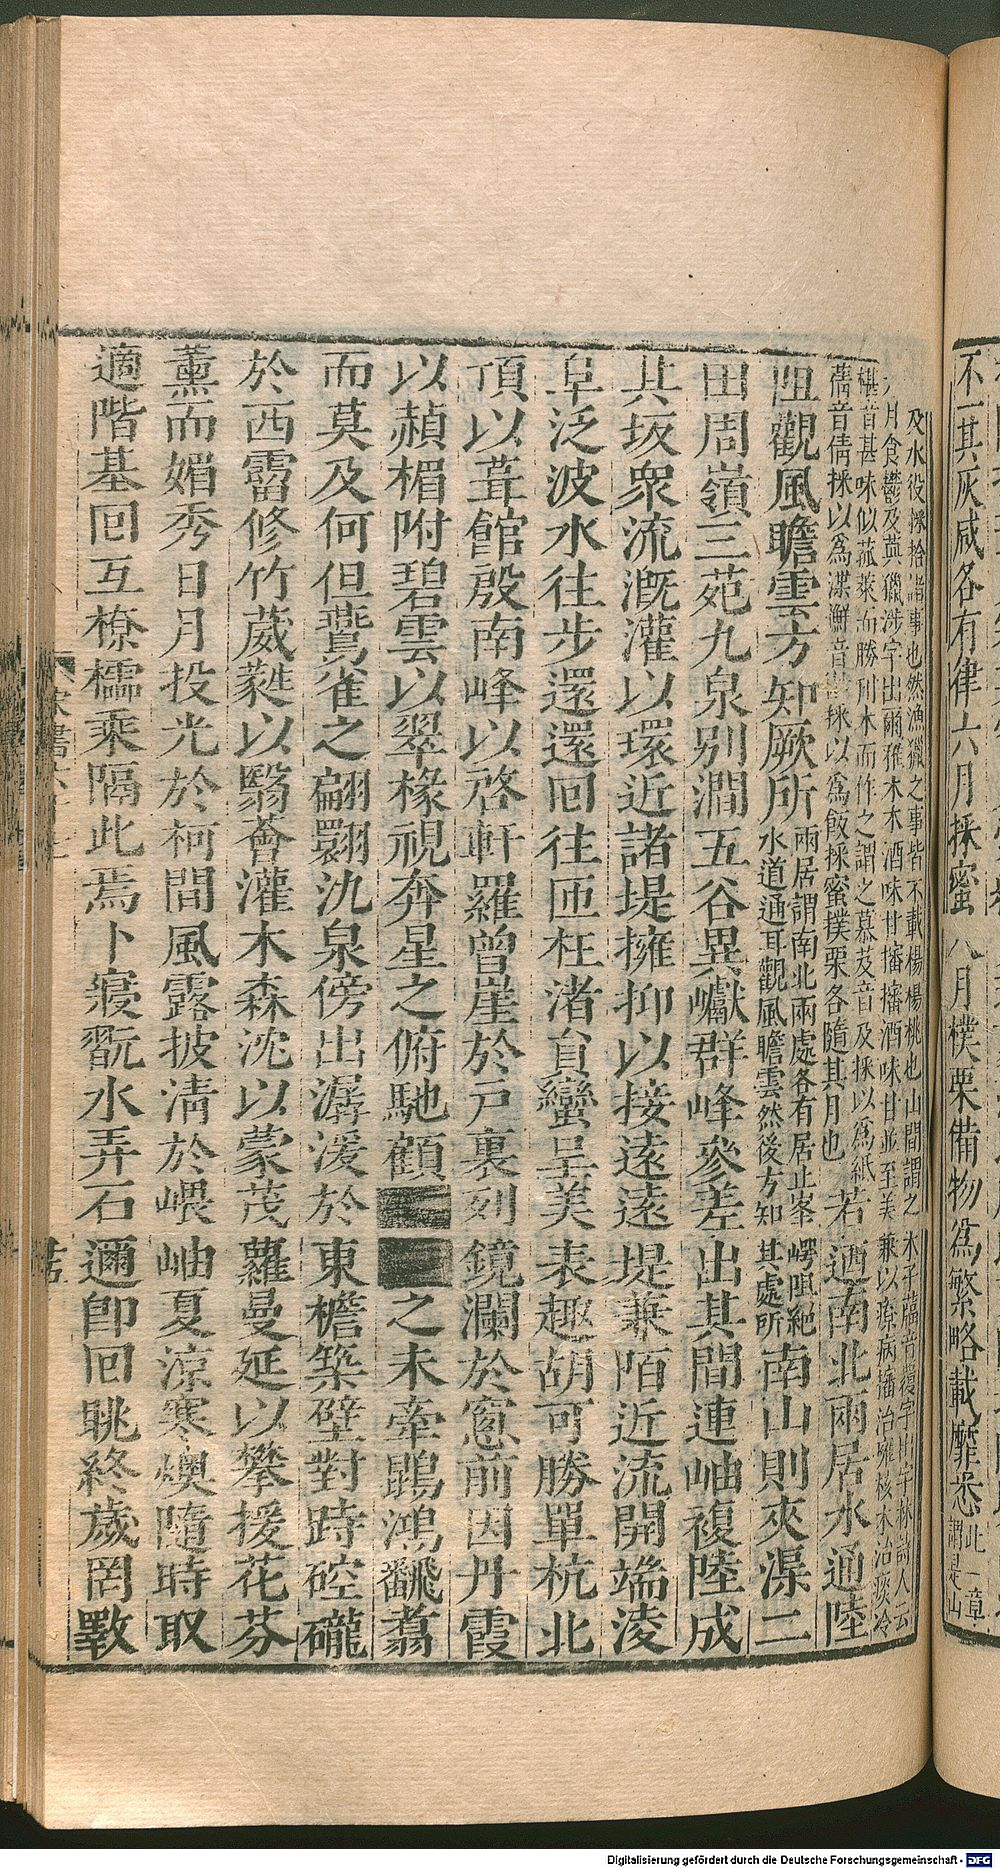 不一其灰咸各有律六月採蜜八月樸栗備物為繁略載靡悉此一章
謂是山
及水役採拾諸事也然漁獵之事皆不載楊楊桃也山間謂之木子蘿音覆字出字林詩人云
六月食鬱及薁獵涉字出爾雅木木酒味甘播播酒味甘並至美兼以療病播治癰核木治痰冷
椹音甚味似菰菜而勝刈木而作之謂之慕芨音及採以為紙
蒨音倩採以為渫鮮音採以為飯採蜜撲栗各隨其月也
若迺南北兩居水通陸
阻觀風瞻雲方知厥所
兩居謂南北兩處各有居止峯崿阻絕
水道通耳觀風瞻雲然後方知其處所
南山則夾渠二
田周嶺三苑九泉別澗五谷異巘群峰參差出其間連岫複陸成
其坂衆流溉灌以環近諸堤擁抑以接遠遠堤兼陌近流開端淩
阜泛波水往步還還回往匝枉渚負巒呈美表趣胡可勝單杭北
頂以葺館殷南峰以啓軒羅曾崖於戶裏列鏡瀾於窻前因丹霞
以赬楣附碧雲以翠椽視奔星之俯馳顧之未牽鵾鴻翻翥
而莫及何但鷰雀之翩翾氿泉傍出潺湲於東檐築壁對峙硿礲
於西霤修竹葳蕤以翳薈灌木森沈以蒙茂蘿曼延以攀援花芬
薰而媚秀日月投光於柯間風露披清於嵔岫夏涼寒燠隨時取
適階基回互橑櫺乘隔此焉卜寢翫水弄石邇卽回眺終歲罔斁
Digitalisierung gefördert durch die Deutsche Forschungsgemeinschaft - DFG